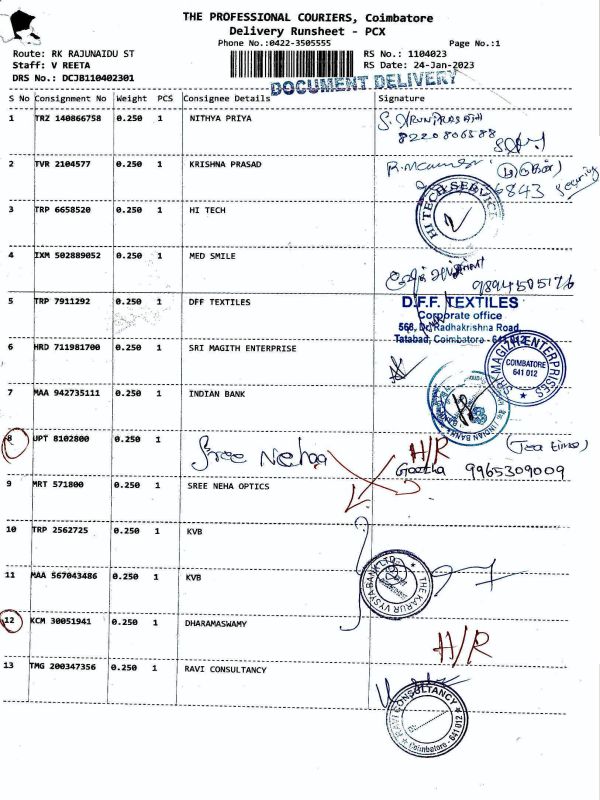 THE PROFESSIONAL COURIERS, Coimbatore
Delivery Runsheet - PCX
Phone No.:0422-3505555 Page No.:1
Route: RK RAJUNAIDU ST RS No.: 1104023
Staff: V REETA RS Date: 24-Jan-2023
DRS No.: DCJB110402301
DOCUMENT DELIVERY
S No Consignment No Weight PCS Consignee Details Signature
1 TRZ 140866758 0.250 1 NITHYA PRIYA
8220806588
2 TVR 2104577 0.250 1 KRISHNA PRASAD
6843 Security
3 TRP 6658520 0.250 1 HI TECH
HI TECH SERVICE
4 IXM 502889052 0.250 1 MED SMILE
9894505176
5 TRP 7911292 0.250 1 DFF TEXTILES
D.F.F. TEXTILES
Corporate office
566, Dr.Radhakrishna Road,
Tatabad, Coimbatore - 641 012
6 HRD 711981700 0.250 1 SRI MAGITH ENTERPRISE
SRI MAGITH ENTERPRISES
COIMBATORE
641 012
7 MAA 942735111 0.250 1 INDIAN BANK
INDIAN BANK
8 UPT 8102800 0.250 1
Sree Neha H/R (Tea time)
Geetha 9965309009
9 MRT 571800 0.250 1 SREE NEHA OPTICS
10 TRP 2562725 0.250 1 KVB
11 MAA 567043486 0.250 1 KVB
THE KARUR VYSYA BANK LTD.
12 KCM 30051941 0.250 1 DHARAMASWAMY
H/R
13 TMG 200347356 0.250 1 RAVI CONSULTANCY
RAVI CONSULTANCY
Coimbatore 641 012